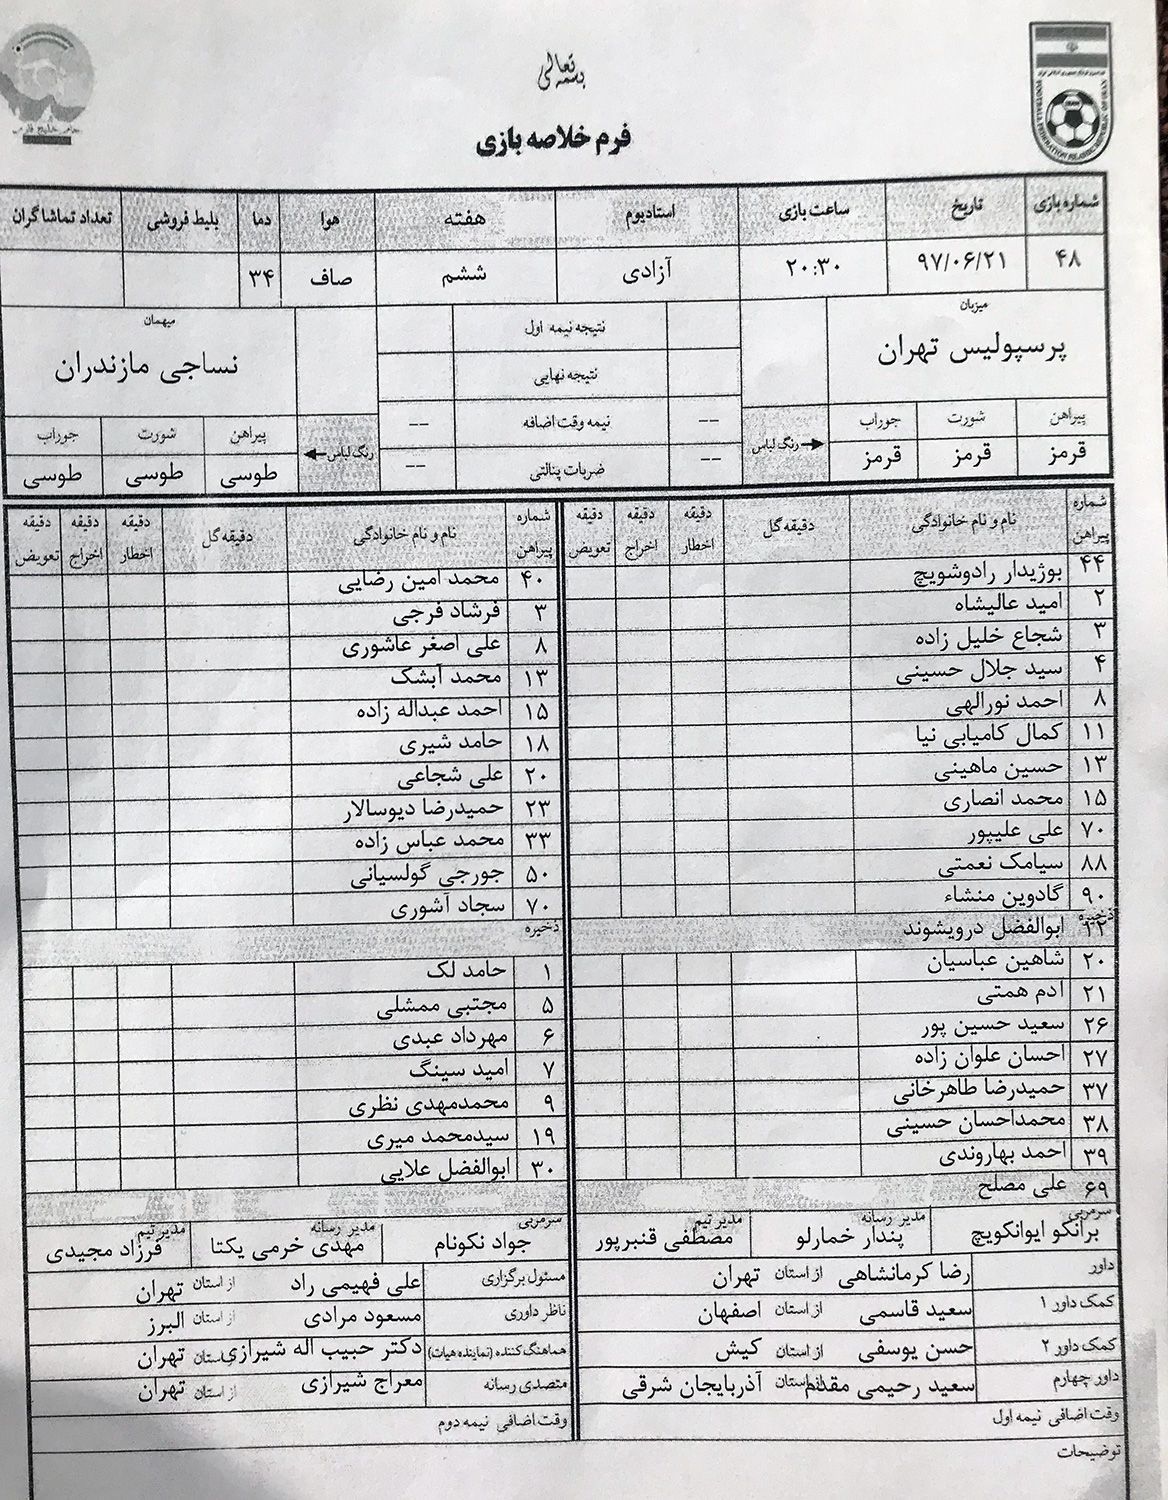 بسمه تعالی
فرم خلاصه بازی
FOOTBALL FEDERATION ISLAMIC REPUBLIC OF IRAN
جام خلیج فارس
شماره بازی تاریخ ساعت بازی استادیوم هفته هوا دما بلیط فروشی تعداد تماشاگران
۴۸ ۹۷/۰۶/۲۱ ۲۰:۳۰ آزادی ششم صاف ۳۴
میزبان نتیجه نیمه اول میهمان
پرسپولیس تهران نتیجه نهایی نساجی مازندران
پیراهن شورت جوراب رنگ لباس -- نیمه وقت اضافه -- رنگ لباس پیراهن شورت جوراب
قرمز قرمز قرمز -- ضربات پنالتی -- طوسی طوسی طوسی
شماره پیراهن نام و نام خانوادگی دقیقه گل دقیقه اخطار دقیقه اخراج دقیقه تعویض شماره پیراهن نام و نام خانوادگی دقیقه گل دقیقه اخطار دقیقه اخراج دقیقه تعویض
۴۴ بوژیدار رادوشویچ ۴۰ محمد امین رضایی
۲ امید عالیشاه ۳ فرشاد فرجی
۳ شجاع خلیل زاده ۸ علی اصغر عاشوری
۴ سید جلال حسینی ۱۳ محمد آبشک
۸ احمد نورالهی ۱۵ احمد عبداله زاده
۱۱ کمال کامیابی نیا ۱۸ حامد شیری
۱۳ حسین ماهینی ۲۰ علی شجاعی
۱۵ محمد انصاری ۲۳ حمیدرضا دیوسالار
۷۰ علی علیپور ۳۳ محمد عباس زاده
۸۸ سیامک نعمتی ۵۰ جورجی گولسیانی
۹۰ گادوین منشاء ۷۰ سجاد آشوری
ذخیره ۲۲ ابوالفضل درویشوند ذخیره
۲۰ شاهین عباسیان ۱ حامد لک
۲۱ آدم همتی ۵ مجتبی ممشلی
۲۶ سعید حسین پور ۶ مهرداد عبدی
۲۷ احسان علوان زاده ۷ امید سینگ
۳۷ حمیدرضا طاهرخانی ۹ محمدمهدی نظری
۳۸ محمداحسان حسینی ۱۹ سیدمحمد میری
۳۹ احمد بهاروندی ۳۰ ابوالفضل علایی
۶۹ علی مصلح
سرمربی برانکو ایوانکویچ مدیر رسانه پندار خمارلو مدیر تیم مصطفی قنبرپور سرمربی جواد نکونام مدیر رسانه مهدی خرمی یکتا مدیر تیم فرزاد مجیدی
داور رضا کرمانشاهی از استان تهران مسئول برگزاری علی فهیمی راد از استان تهران
کمک داور ۱ سعید قاسمی از استان اصفهان ناظر داوری مسعود مرادی از استان البرز
کمک داور ۲ حسن یوسفی از استان کیش هماهنگ کننده (نماینده هیات) دکتر حبیب اله شیرازی از استان تهران
داور چهارم سعید رحیمی مقدم از استان آذربایجان شرقی متصدی رسانه معراج شیرازی از استان تهران
وقت اضافی نیمه اول وقت اضافی نیمه دوم
توضیحات